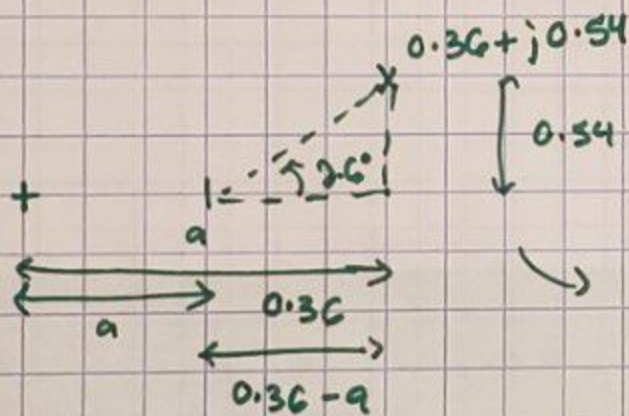 0.36+j0.54
0.54
7.6°
a
0.36
a
0.36-a